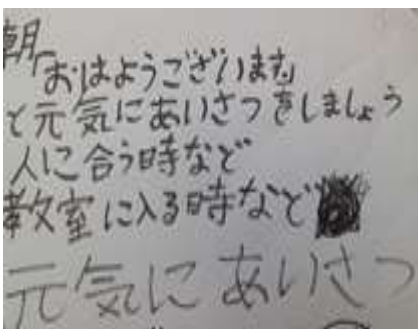 朝「おはようございます」
と元気にあいさつをしましょう
人に合う時など
教室に入る時など
元気にあいさつ